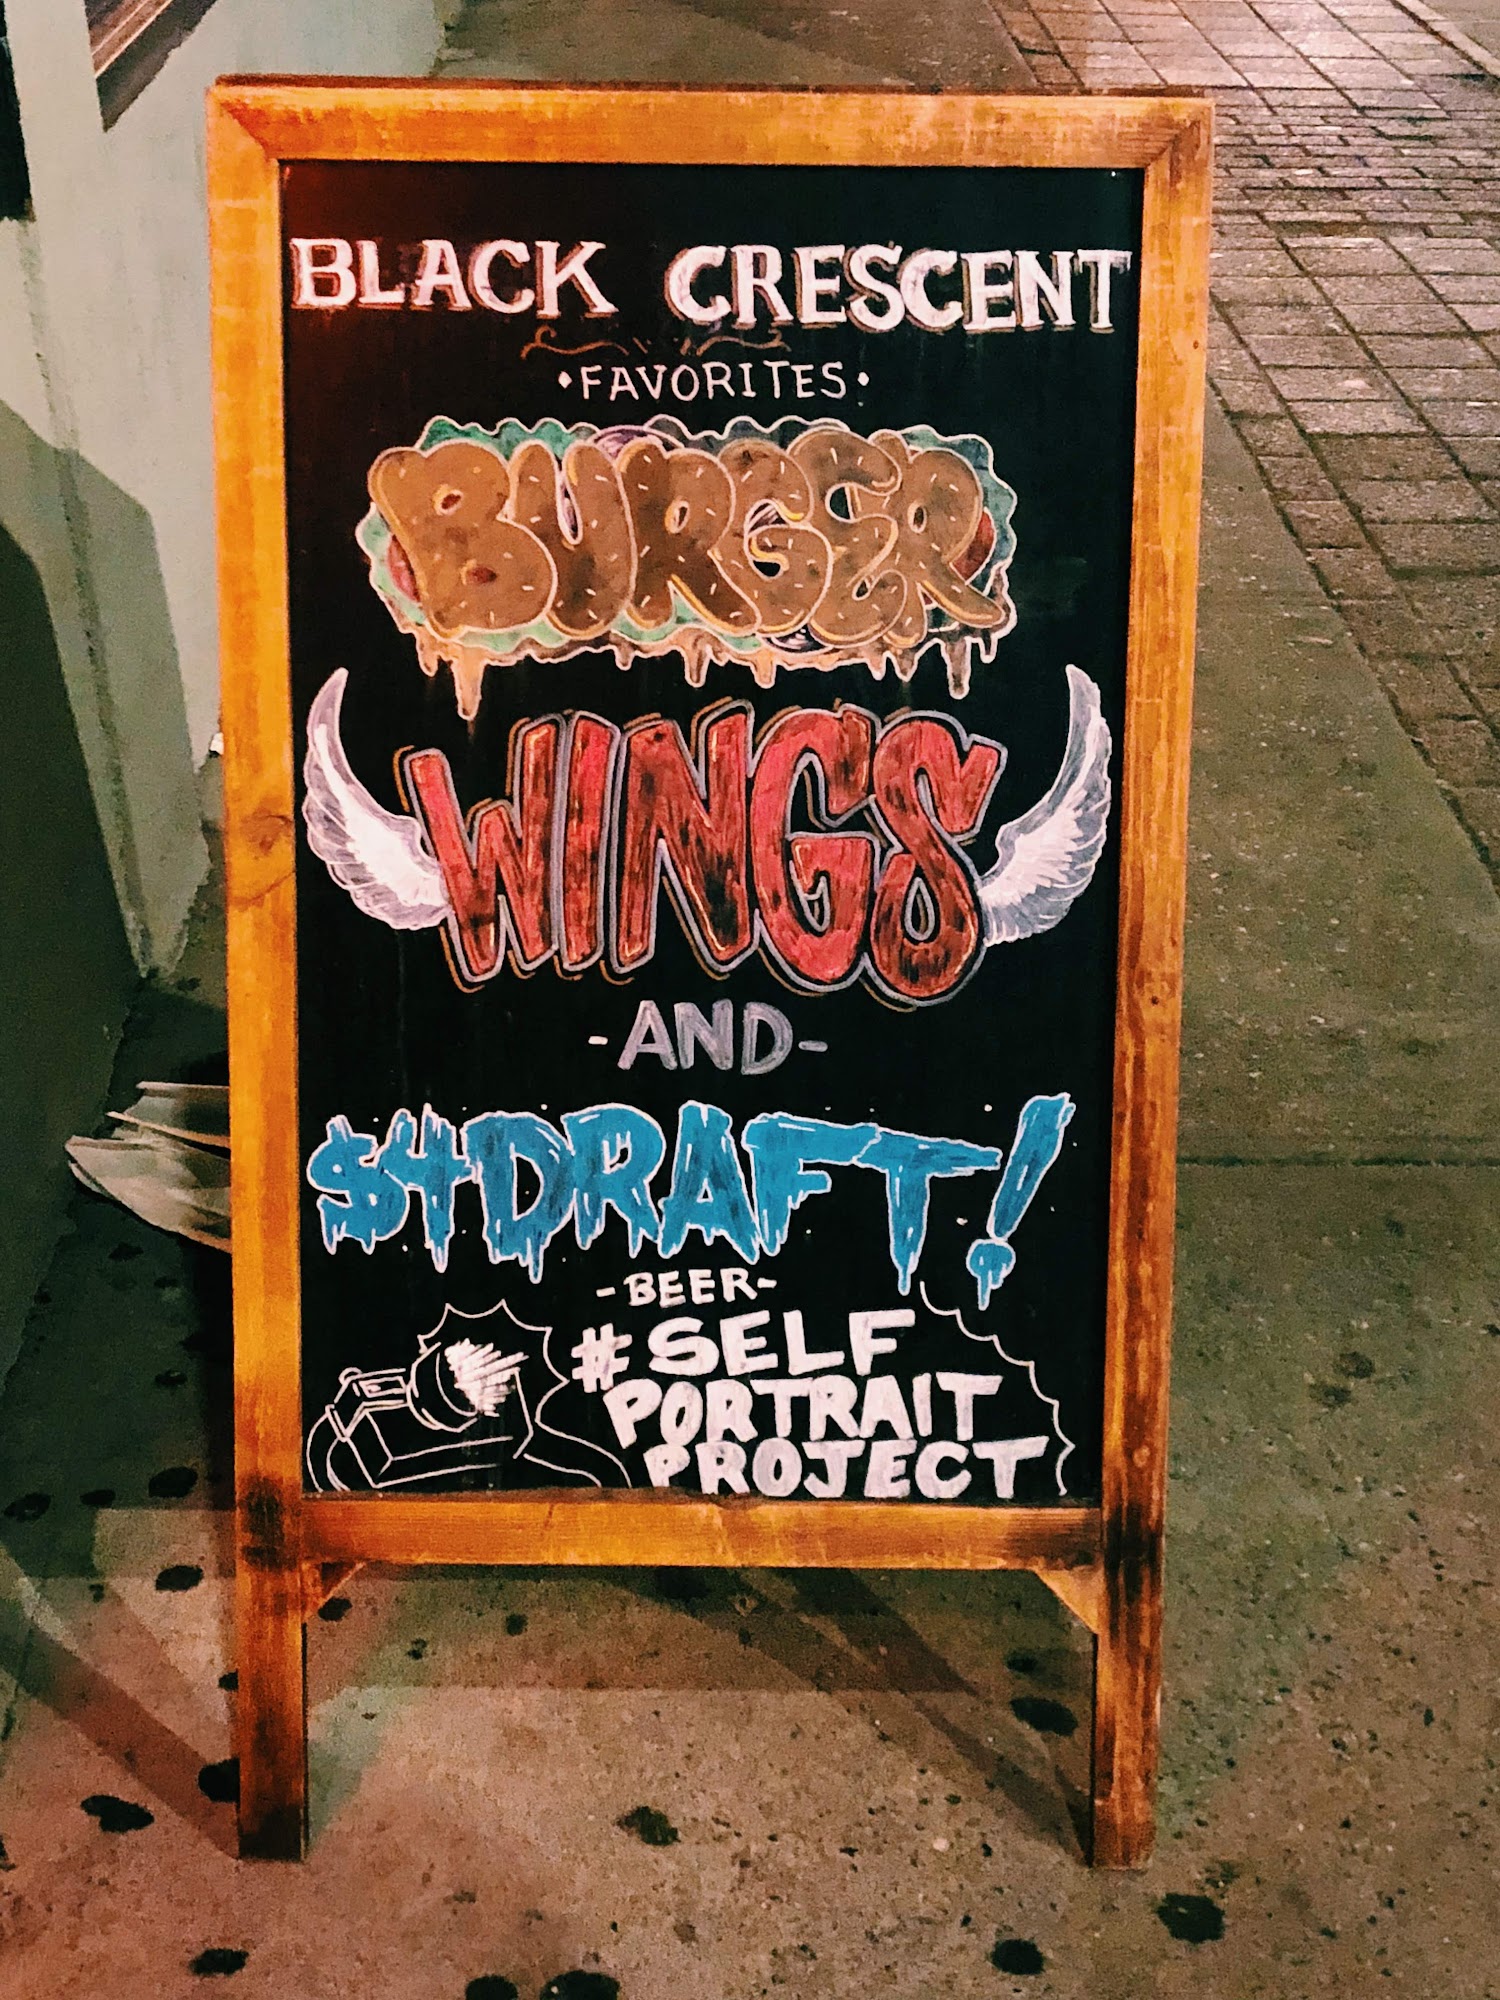 BLACK CRESCENT
•FAVORITES•
BURGER
WINGS
-AND-
$4 DRAFT!
-BEER-
#SELF
PORTRAIT
PROJECT